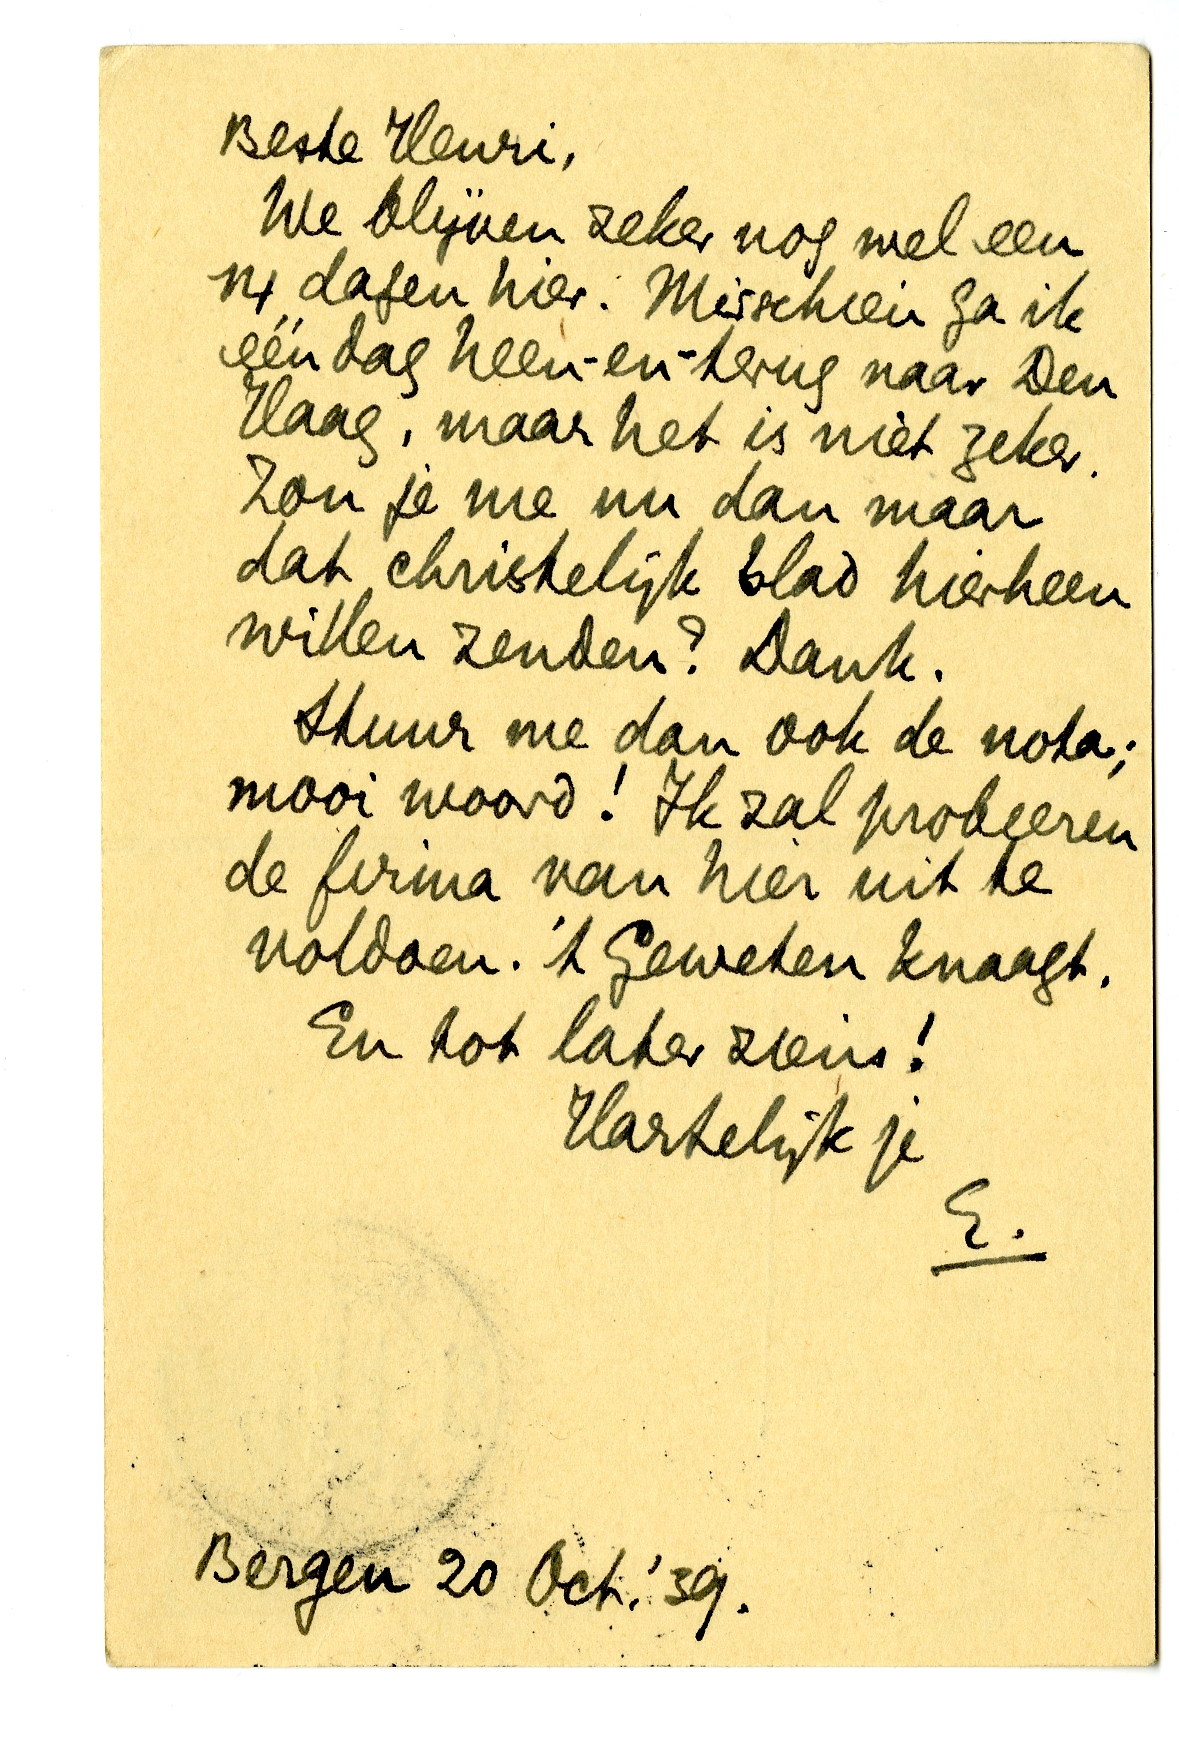 Beste Henri,
We blijven zeker nog wel een
14 dagen hier. Misschien ga ik
één dag heen-en-terug naar Den
Haag, maar het is niet zeker.
Zou je me nu dan maar
dat christelijk blad hierheen
willen zenden? Dank.
Stuur me dan ook de nota;
mooi woord! Ik zal probeeren
de firma van hier uit te
voldoen. 't Geweten knaagt.
En tot later ziens!
Hartelijk je
E.
Bergen 20 Oct. '39.